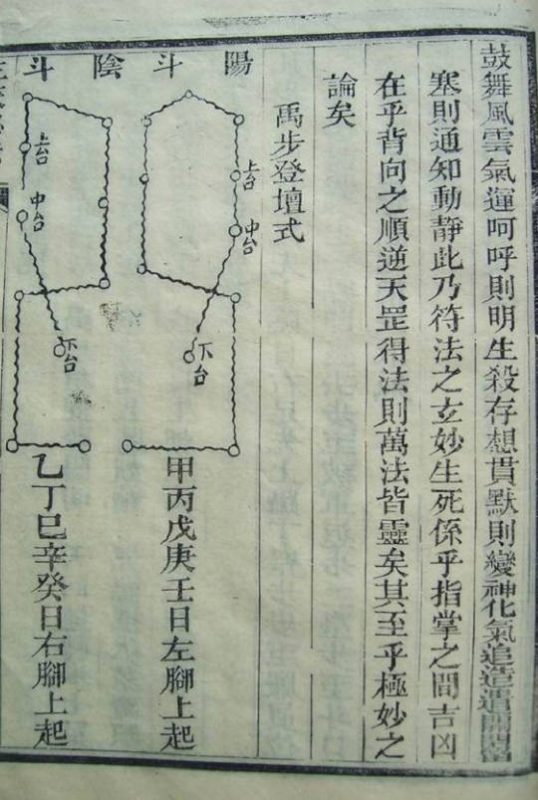 鼓舞風雲氣運呵呼則明生殺存想貫默則變神化氣追造遣開閉
塞則通知動靜此乃符法之玄妙生死係乎指掌之間吉凶
在乎背向之順逆天罡得法則萬法皆靈矣其至乎極妙之
論矣
禹步登壇式
陽斗
上台
中台
下台
甲丙戊庚壬日左腳上起
陰斗
上台
中台
下台
乙丁巳辛癸日右腳上起